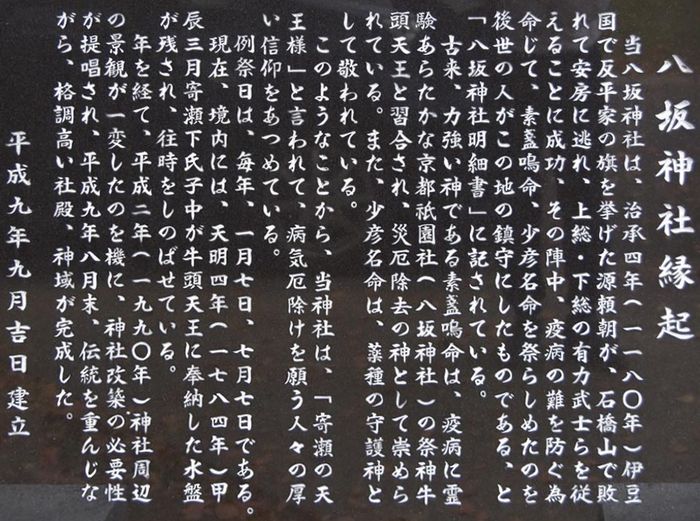 八坂神社縁起
当八坂神社は、治承四年(一一八〇年)伊豆
国で反平家の旗を挙げた源頼朝が、石橋山で敗
れて安房に逃れ、上総・下総の有力武士らを従
えることに成功、その陣中、疫病の難を防ぐ為
命じて、素盞嗚命、少彦名命を祭らしめたのを
後世の人がこの地の鎮守にしたものである、と
「八坂神社明細書」に記されている。
古来、力強い神である素盞嗚命は、疫病に霊
験あらたかな京都祇園社(八坂神社)の祭神牛
頭天王と習合され、災厄除去の神として崇めら
れている。また、少彦名命は、薬種の守護神と
して敬われている。
このようなことから、当神社は、「寄瀬の天
王様」と言われて、病気厄除けを願う人々の厚
い信仰をあつめている。
例祭日は、毎年、一月七日、七月七日である。
現在、境内には、天明四年(一七八四年)甲
辰三月寄瀬下氏子中が牛頭天王に奉納した水盤
が残され、往時をしのばせている。
年を経て、平成二年(一九九〇年)神社周辺
の景観が一変したのを機に、神社改築の必要性
が提唱され、平成九年八月末、伝統を重んじな
がら、格調高い社殿、神域が完成した。
平成九年九月吉日建立